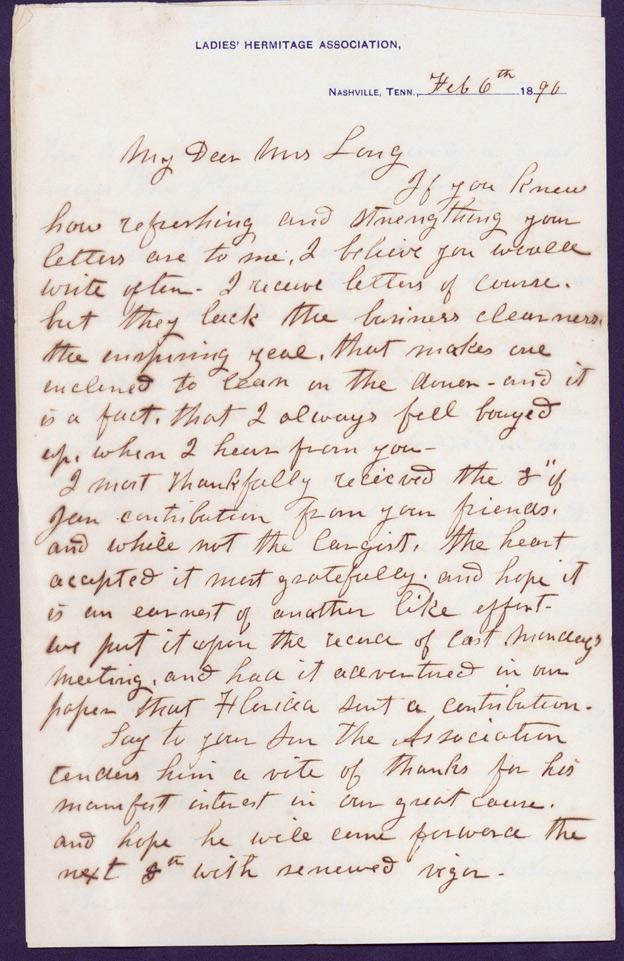 LADIES' HERMITAGE ASSOCIATION,
NASHVILLE, TENN., Feb 6th 1890
My Dear Mrs Long
If you knew
how refreshing and strengthing your
letters are to me, I believe you would
write often - I receive letters of course.
but they lack the business clearness,
the inspiring zeal, that makes one
inclined to lean on the doner - and it
is a fact, that I always fell bouyed
up, when I hear from you -
I most thankfully recieved the 8" of
Jan contribution from your friends.
and while not the largist, the heart
accepted it most gratefully. and hope it
is an earnest of another like effort -
we put it upon the record of last Mondays
meeting, and had it adventured in our
paper that Florida sent a contribution -
Say to your Son the Association
tenders him a vote of thanks for his
manifest interest in our great cause.
and hope he will come forward the
next 8th with renewed vigor -